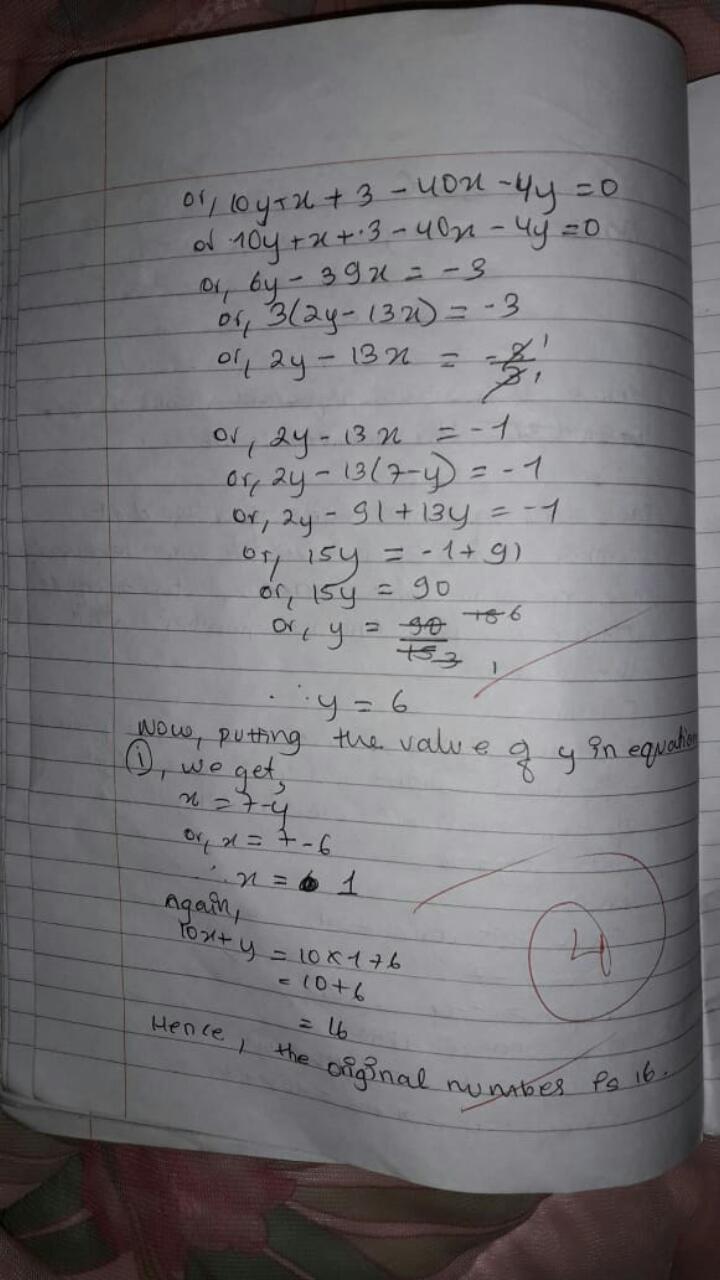 or, 10y+x + 3 - 40x - 4y = 0
or 10y + x + 3 - 40x - 4y = 0
or, 6y - 39x = -3
or, 3(2y - 13x) = -3
or, 2y - 13x = -3/3 1 1
or, 2y - 13x = -1
or, 2y - 13(7-y) = -1
or, 2y - 91 + 13y = -1
or, 15y = -1 + 91
or, 15y = 90
or, y = 90/15 18 6 3 1
∴ y = 6
Now, putting the value of y in equation
①, we get,
x = 7-y
or, x = 7 - 6
∴ x = 1
Again,
10x + y = 10 × 1 + 6
= 10 + 6
= 16
Hence, the original number is 16.
4